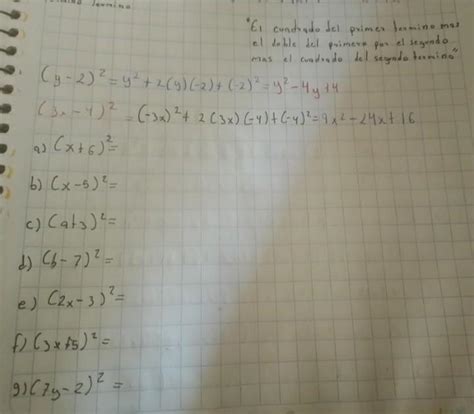 termino
"El cuadrado del primer termino mas
el doble del primero por el segundo
mas el cuadrado del segundo termino"
(y-2)²=y²+2(y)(-2)+(-2)²=y²-4y+4
(3x-4)²=(-3x)²+2(3x)(-4)+(-4)²=9x²-24x+16
a) (x+6)²=
b) (x-5)²=
c) (a+3)²=
d) (b-7)²=
e) (2x-3)²=
f) (3x+5)²=
g) (7y-2)²=